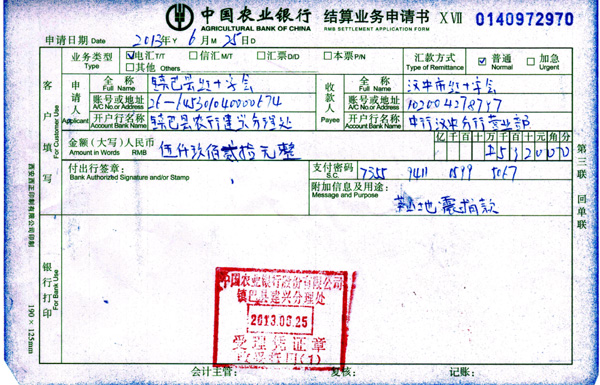 中国农业银行 结算业务申请书 XVII 0140972970
AGRICULTURAL BANK OF CHINA RMB SETTLEMENT APPLICATION FORM
申请日期 Date 2013年Y 6月M 25日D
业务类型 Type ☑电汇T/T □信汇M/T □汇票D/D □本票P/N □其他 Others
汇款方式 Type of Remittance ☑普通 Normal □加急 Urgent
客户填写 For Customer Use
申请人 Applicant
全称 Full Name 镇巴县红十字会
账号或地址 A/C No.or Address 26-145301040000674
开户行名称 Account Bank Name 镇巴县农行建兴分理处
收款人 Payee
全称 Full Name 汉中市红十字会
账号或地址 A/C No.or Address 102004278747
开户行名称 Account Bank Name 中行汉中分行营业部
金额(大写)人民币 Amount in Words RMB 伍仟玖佰贰拾元整
亿千百十万千百十元角分
¥592000
付出行签章: Bank Authorized Signature and/or Stamp
支付密码 S.C. 7355 9411 0599 5067
附加信息及用途: Message and Purpose
地震捐款
第三联 回单联
西安西正印制有限公司印制
190×125mm
银行打印 For Bank Use
中国农业银行股份有限公司
镇巴县建兴分理处
2013.06.25
受理凭证章
(1)
会计主管: 复核: 记账: